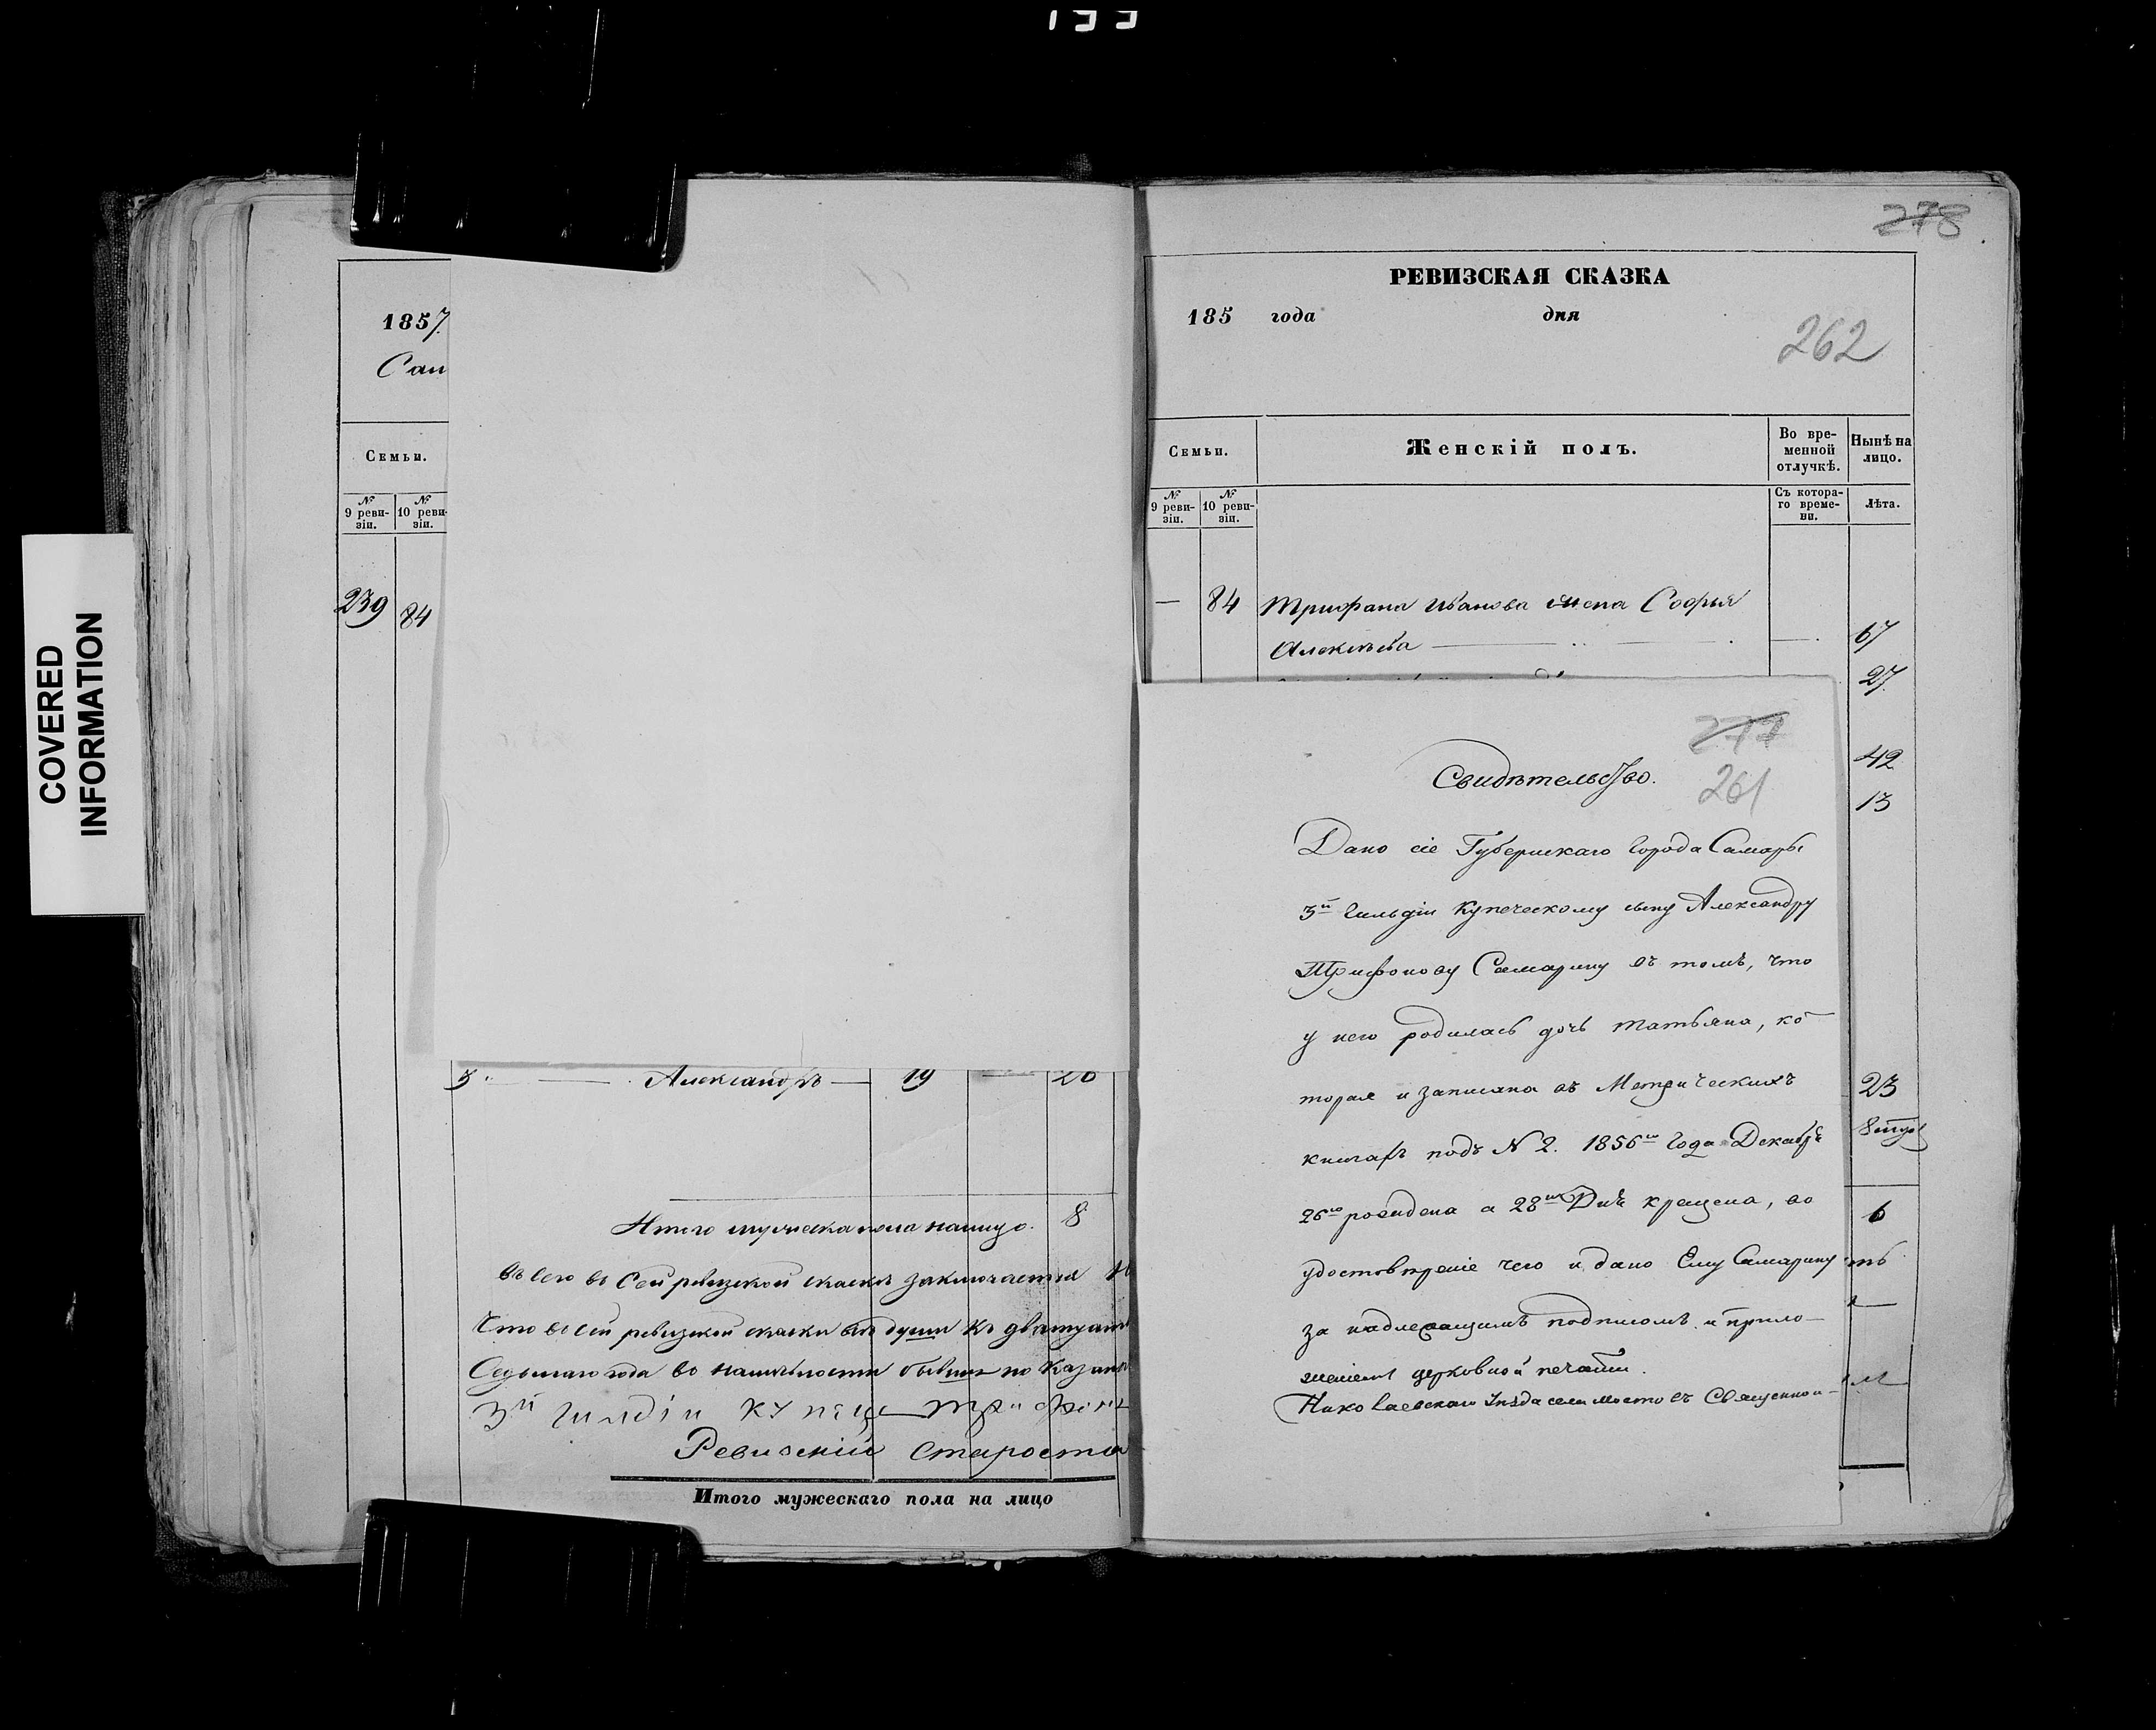 133
COVERED
INFORMATION
1857.
Сам
Семьи.
№ 9 ревизіи.
№ 10 ревизіи.
239 84
3 Александръ 19 26
Итого мужеска пола налицо. 8
Всего въ Сей ревизской сказкѣ заключается
Что въ сей ревизской сказки всѣ души къ
Седьмаго года во наличности бывшие по
3й гилдіи купецъ
Ревизскій староста
Итого мужескаго пола на лицо
278
РЕВИЗСКАЯ СКАЗКА
185 года дня
262
Семьи.
Женскій полъ.
Во временной отлучкѣ.
Нынѣ на лицо.
№ 9 ревизіи.
№ 10 ревизіи.
Съ котораго времени.
Лѣта.
— 84 Трифана Иванова жена Софья
Алексѣева 67
27
42
13
277
261
Свидѣтельство.
Дано сіе Губернскаго города Самары
3й Гильдіи Купеческому сыну Александру
Трифонову Самарину въ томъ, что
у него родилась дочь Татьяна, ко-
торая и записана въ Метрическихъ
книгахъ подъ N 2. 1856го Года Декабря
26го рождена а 28го Дня крещена, во
удостовѣреніе чего и дано Ему Самарину
за надлежащимъ подписомъ и прило-
женіемъ церковной печати.
Николаевскаго Уѣзда села Священно-
23
6